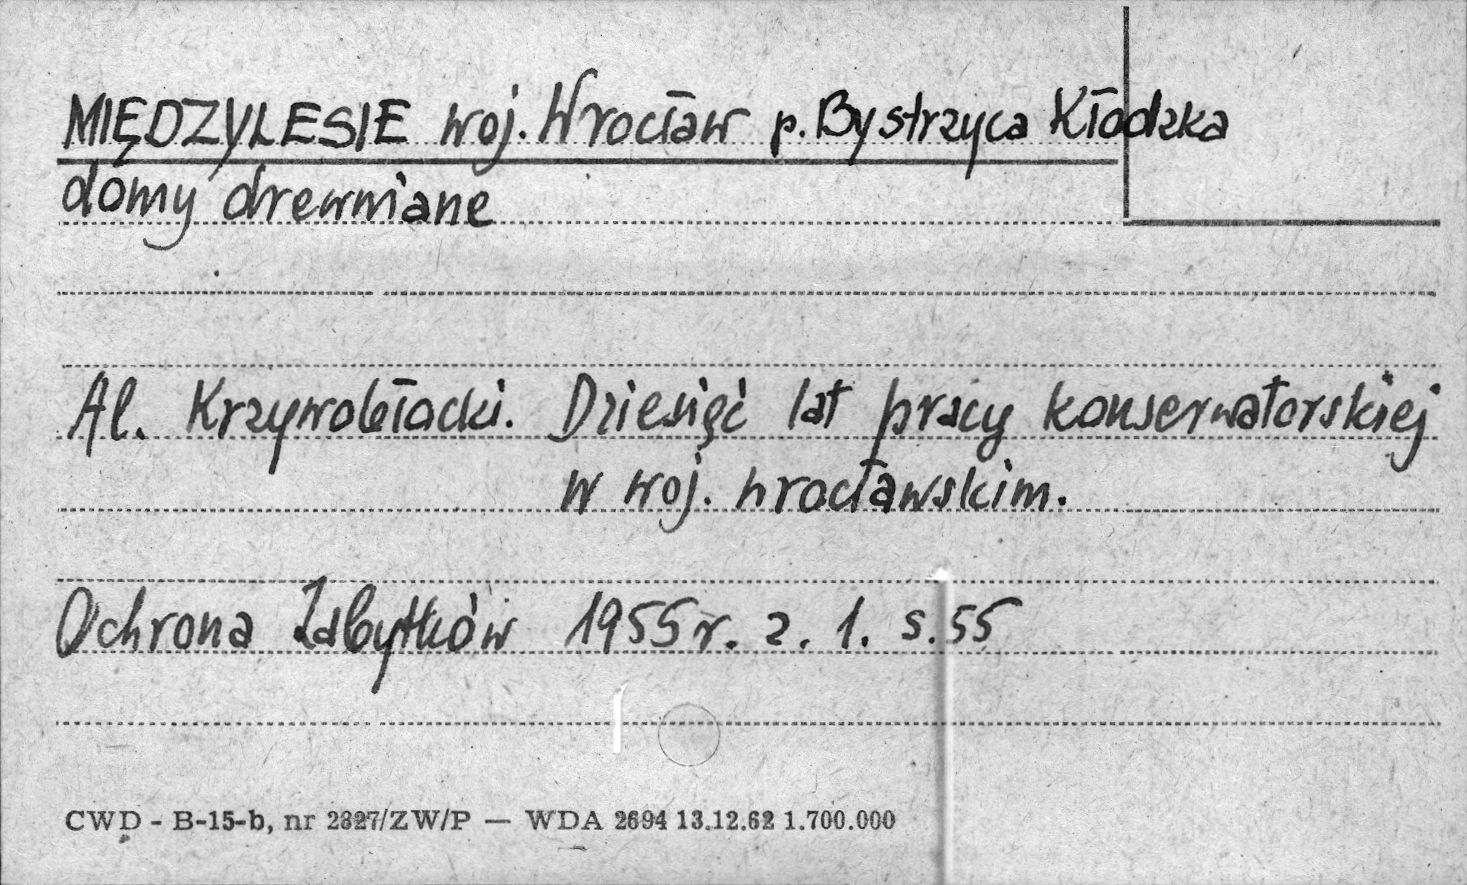 MIĘDZYLESIE woj. Wrocław p. Bystrzyca Kłodzka
domy drewniane
Al. Krzywobłocki. Dziesięć lat pracy konserwatorskiej
w woj. wrocławskim.
Ochrona Zabytków 1955 r. z. 1. s. 55
CWD - B-15-b, nr 2327/ZW/P — WDA 2694 13.12.62 1.700.000